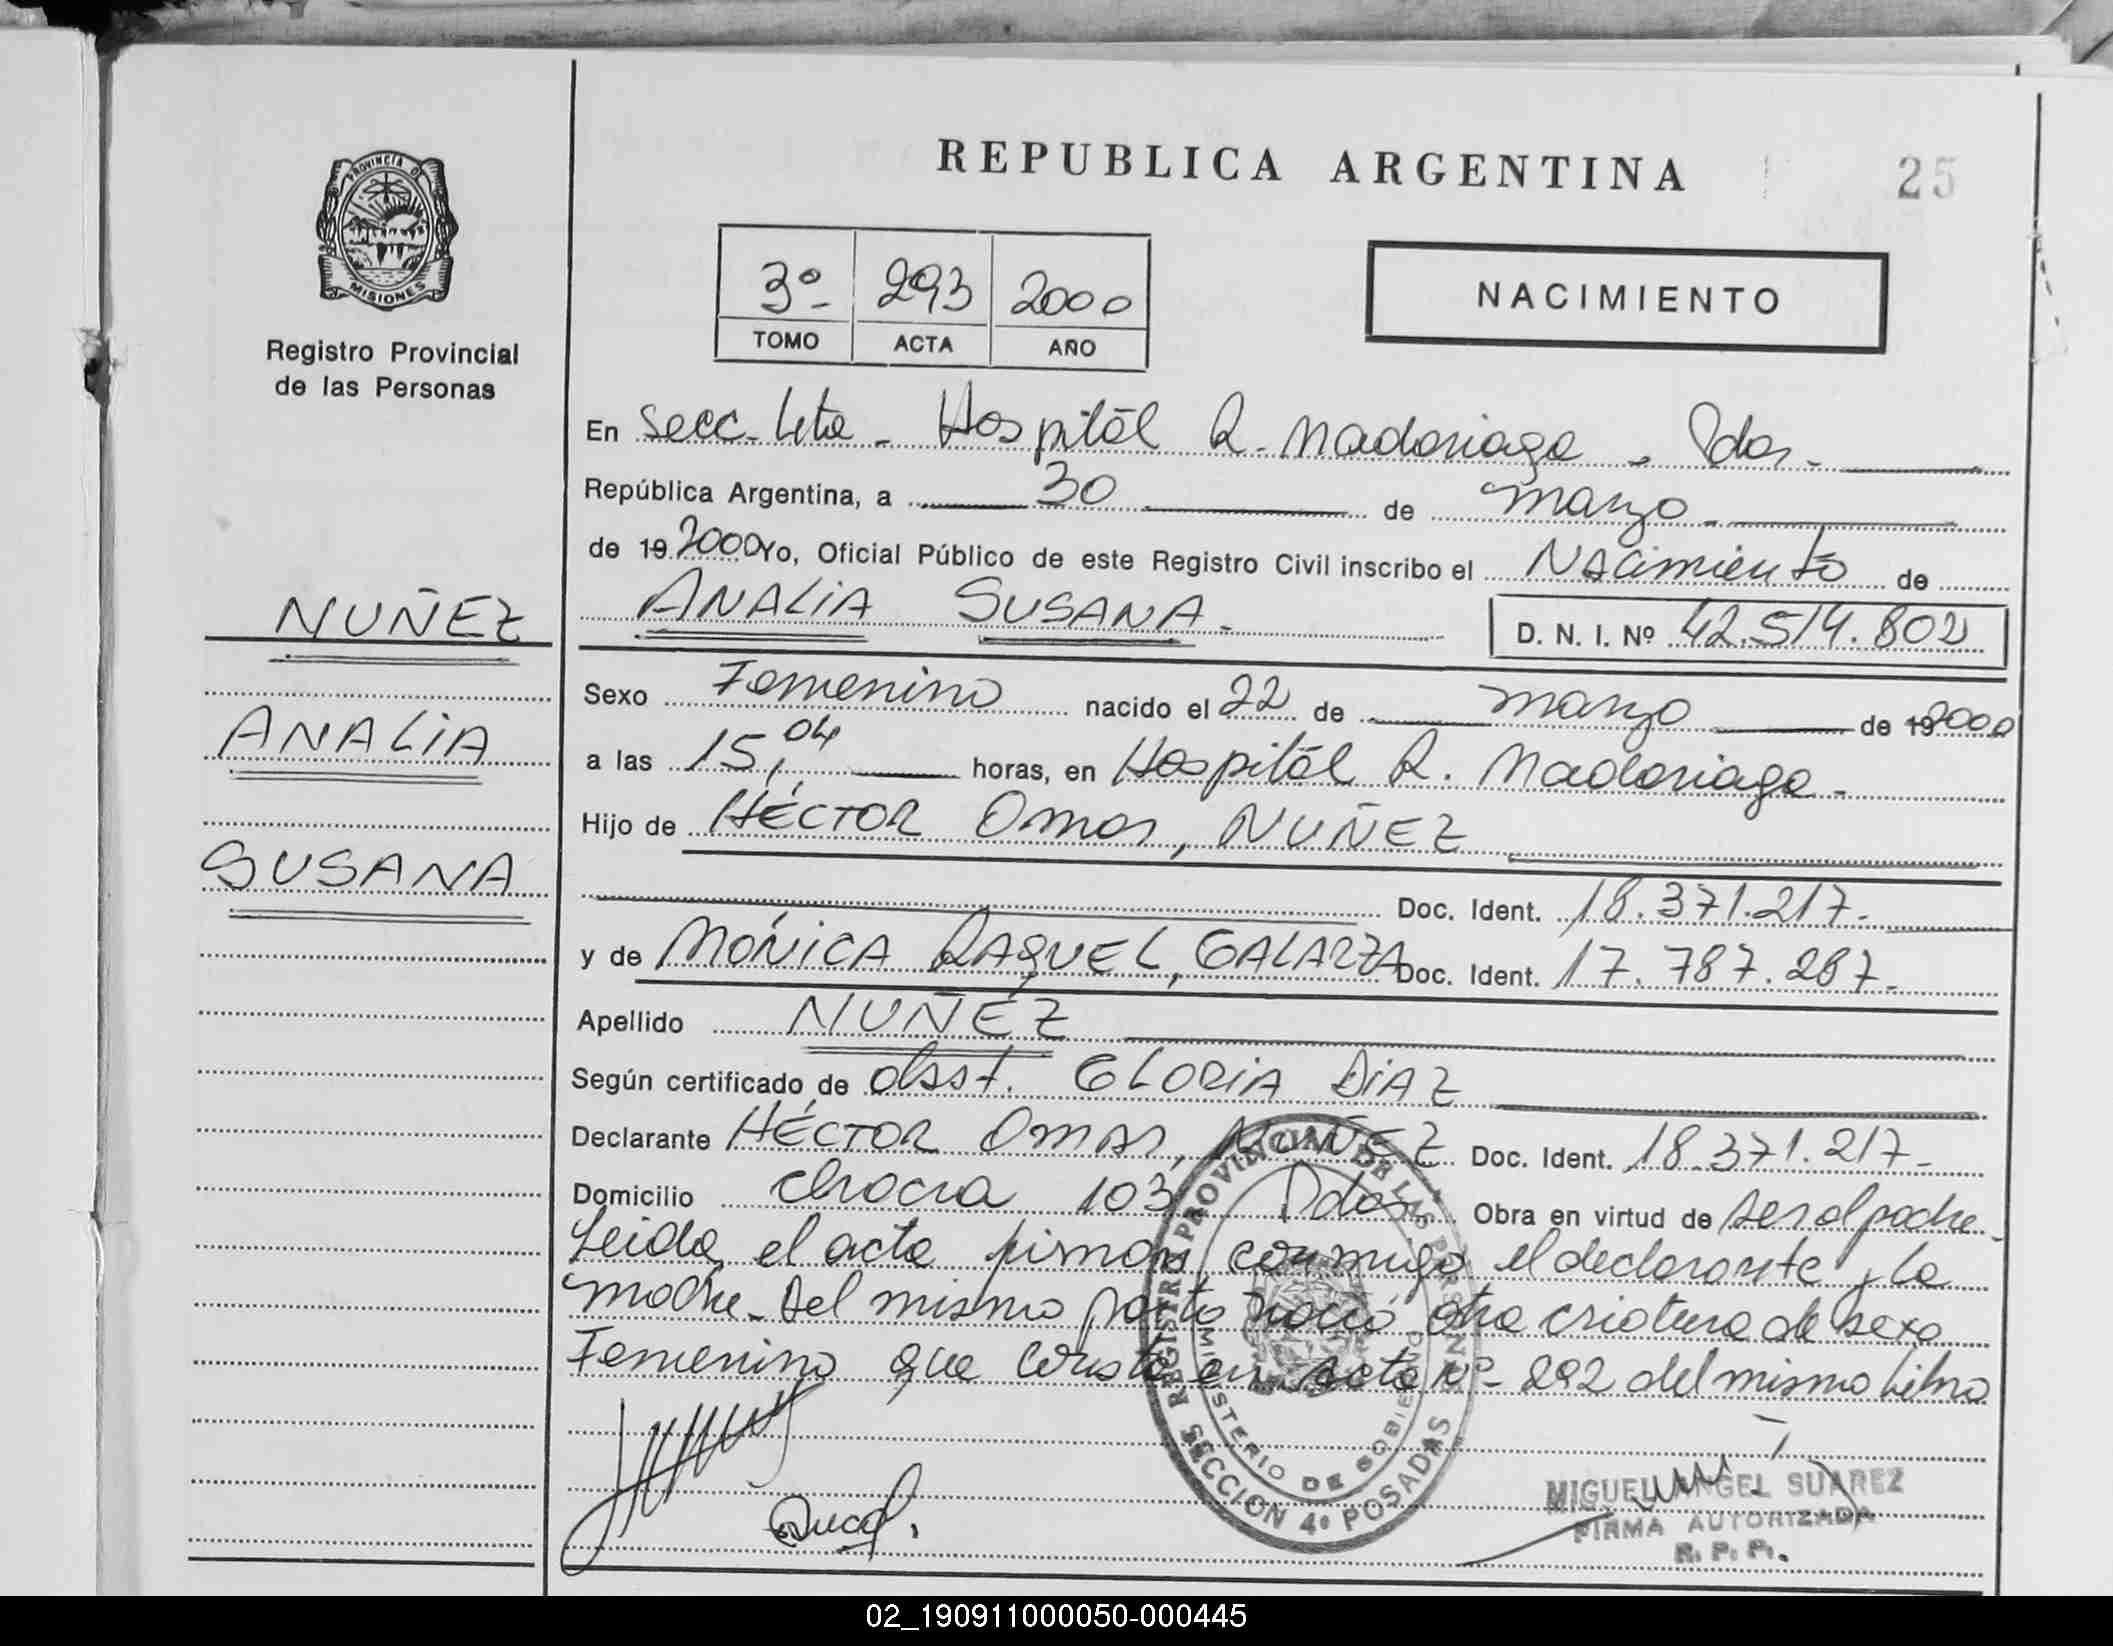 REPUBLICA ARGENTINA
25
PROVINCIA DE
MISIONES
Registro Provincial
de las Personas
3º 293 2000
TOMO ACTA AÑO
NACIMIENTO
En Secc. 4ta - Hospital R. Madariaga - Pdas.
República Argentina, a 30 de marzo
de 19 2000 Yo, Oficial Público de este Registro Civil inscribo el Nacimiento de
ANALIA SUSANA. D. N. I. Nº 42.514.802
NUÑEZ
ANALIA
SUSANA
Sexo Femenino nacido el 22 de marzo de 19 2000
a las 15,04 horas, en Hospital R. Madariaga.
Hijo de HÉCTOR Omar, NUÑEZ
Doc. Ident. 18.371.217.
y de MÓNICA RAQUEL, GALARZA Doc. Ident. 17.787.287.
Apellido NUÑEZ
Según certificado de obst. GLORIA DIAZ
Declarante HÉCTOR Omar, NUÑEZ Doc. Ident. 18.371.217.
Domicilio chacra 103 Pdas. Obra en virtud de ser el padre.
Leida el acta firman conmigo el declarante y la
madre. Del mismo parto nació otra criatura de sexo
Femenino que consta en acta nº 292 del mismo Libro
REGISTRO PROVINCIAL DE LAS PERSONAS
MINISTERIO DE GOBIERNO
SECCION 4º POSADAS
MIGUEL ANGEL SUAREZ
FIRMA AUTORIZADA
R. P. P.
02_190911000050-000445